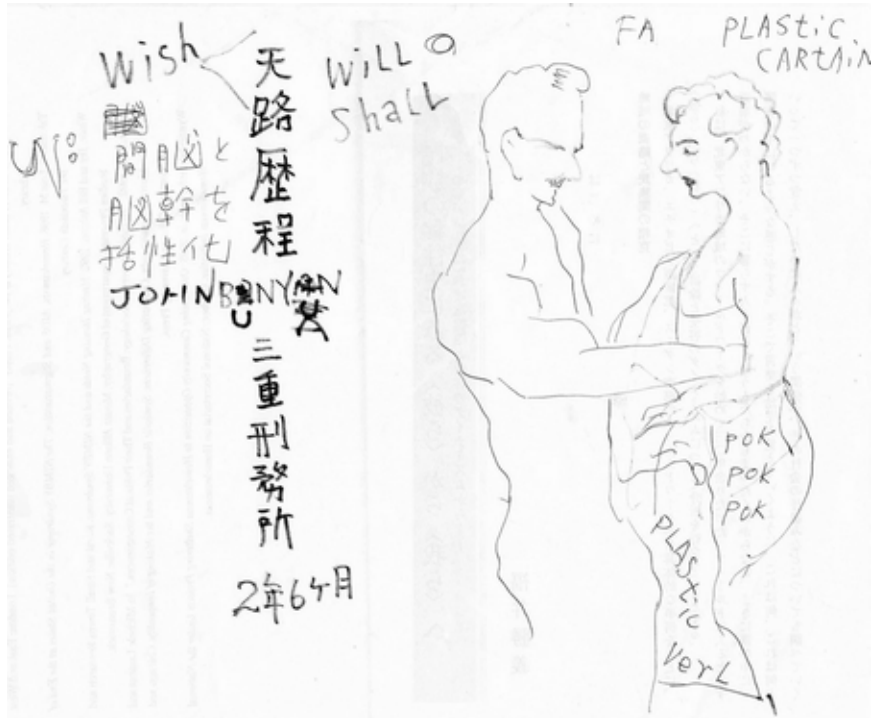 Wish
天路歴程
WiLL
ShaLL
FA
PLAStiC
CARtAiN
間脳と
脳幹を
括性化
JOHN BUNYAN
三重刑務所
2年6ケ月
POK
POK
POK
PLAStiC
VerL